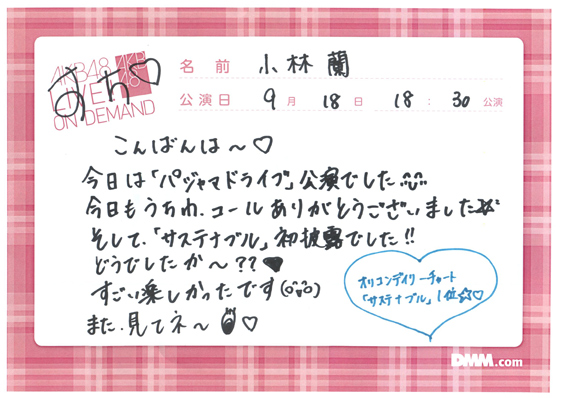 AKB48
LIVE!!
ON DEMAND
AKB
48
名前 小林 蘭
公演日 9月 18日 18:30公演
こんばんは～♡
今日は「パジャマドライブ」公演でした
今日もうちわ、コールありがとうございました
そして、「サステナブル」初披露でした!!
どうでしたか～??
すごい楽しかったです
また、見てネ～♡
オリコンデイリーチャート
「サステナブル」1位☆♡
DMM.com